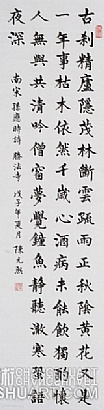 古刹精廬隱茂林斷雲疏雨正秋陰黄花又是
一年事枯木依然千歲心酒病未能獨酌懷
人無與共吟僧窗夢覺鐘魚靜聽漱寒語
夜深
南宋孫應時詩勝法寺 戊子年夏月陳元